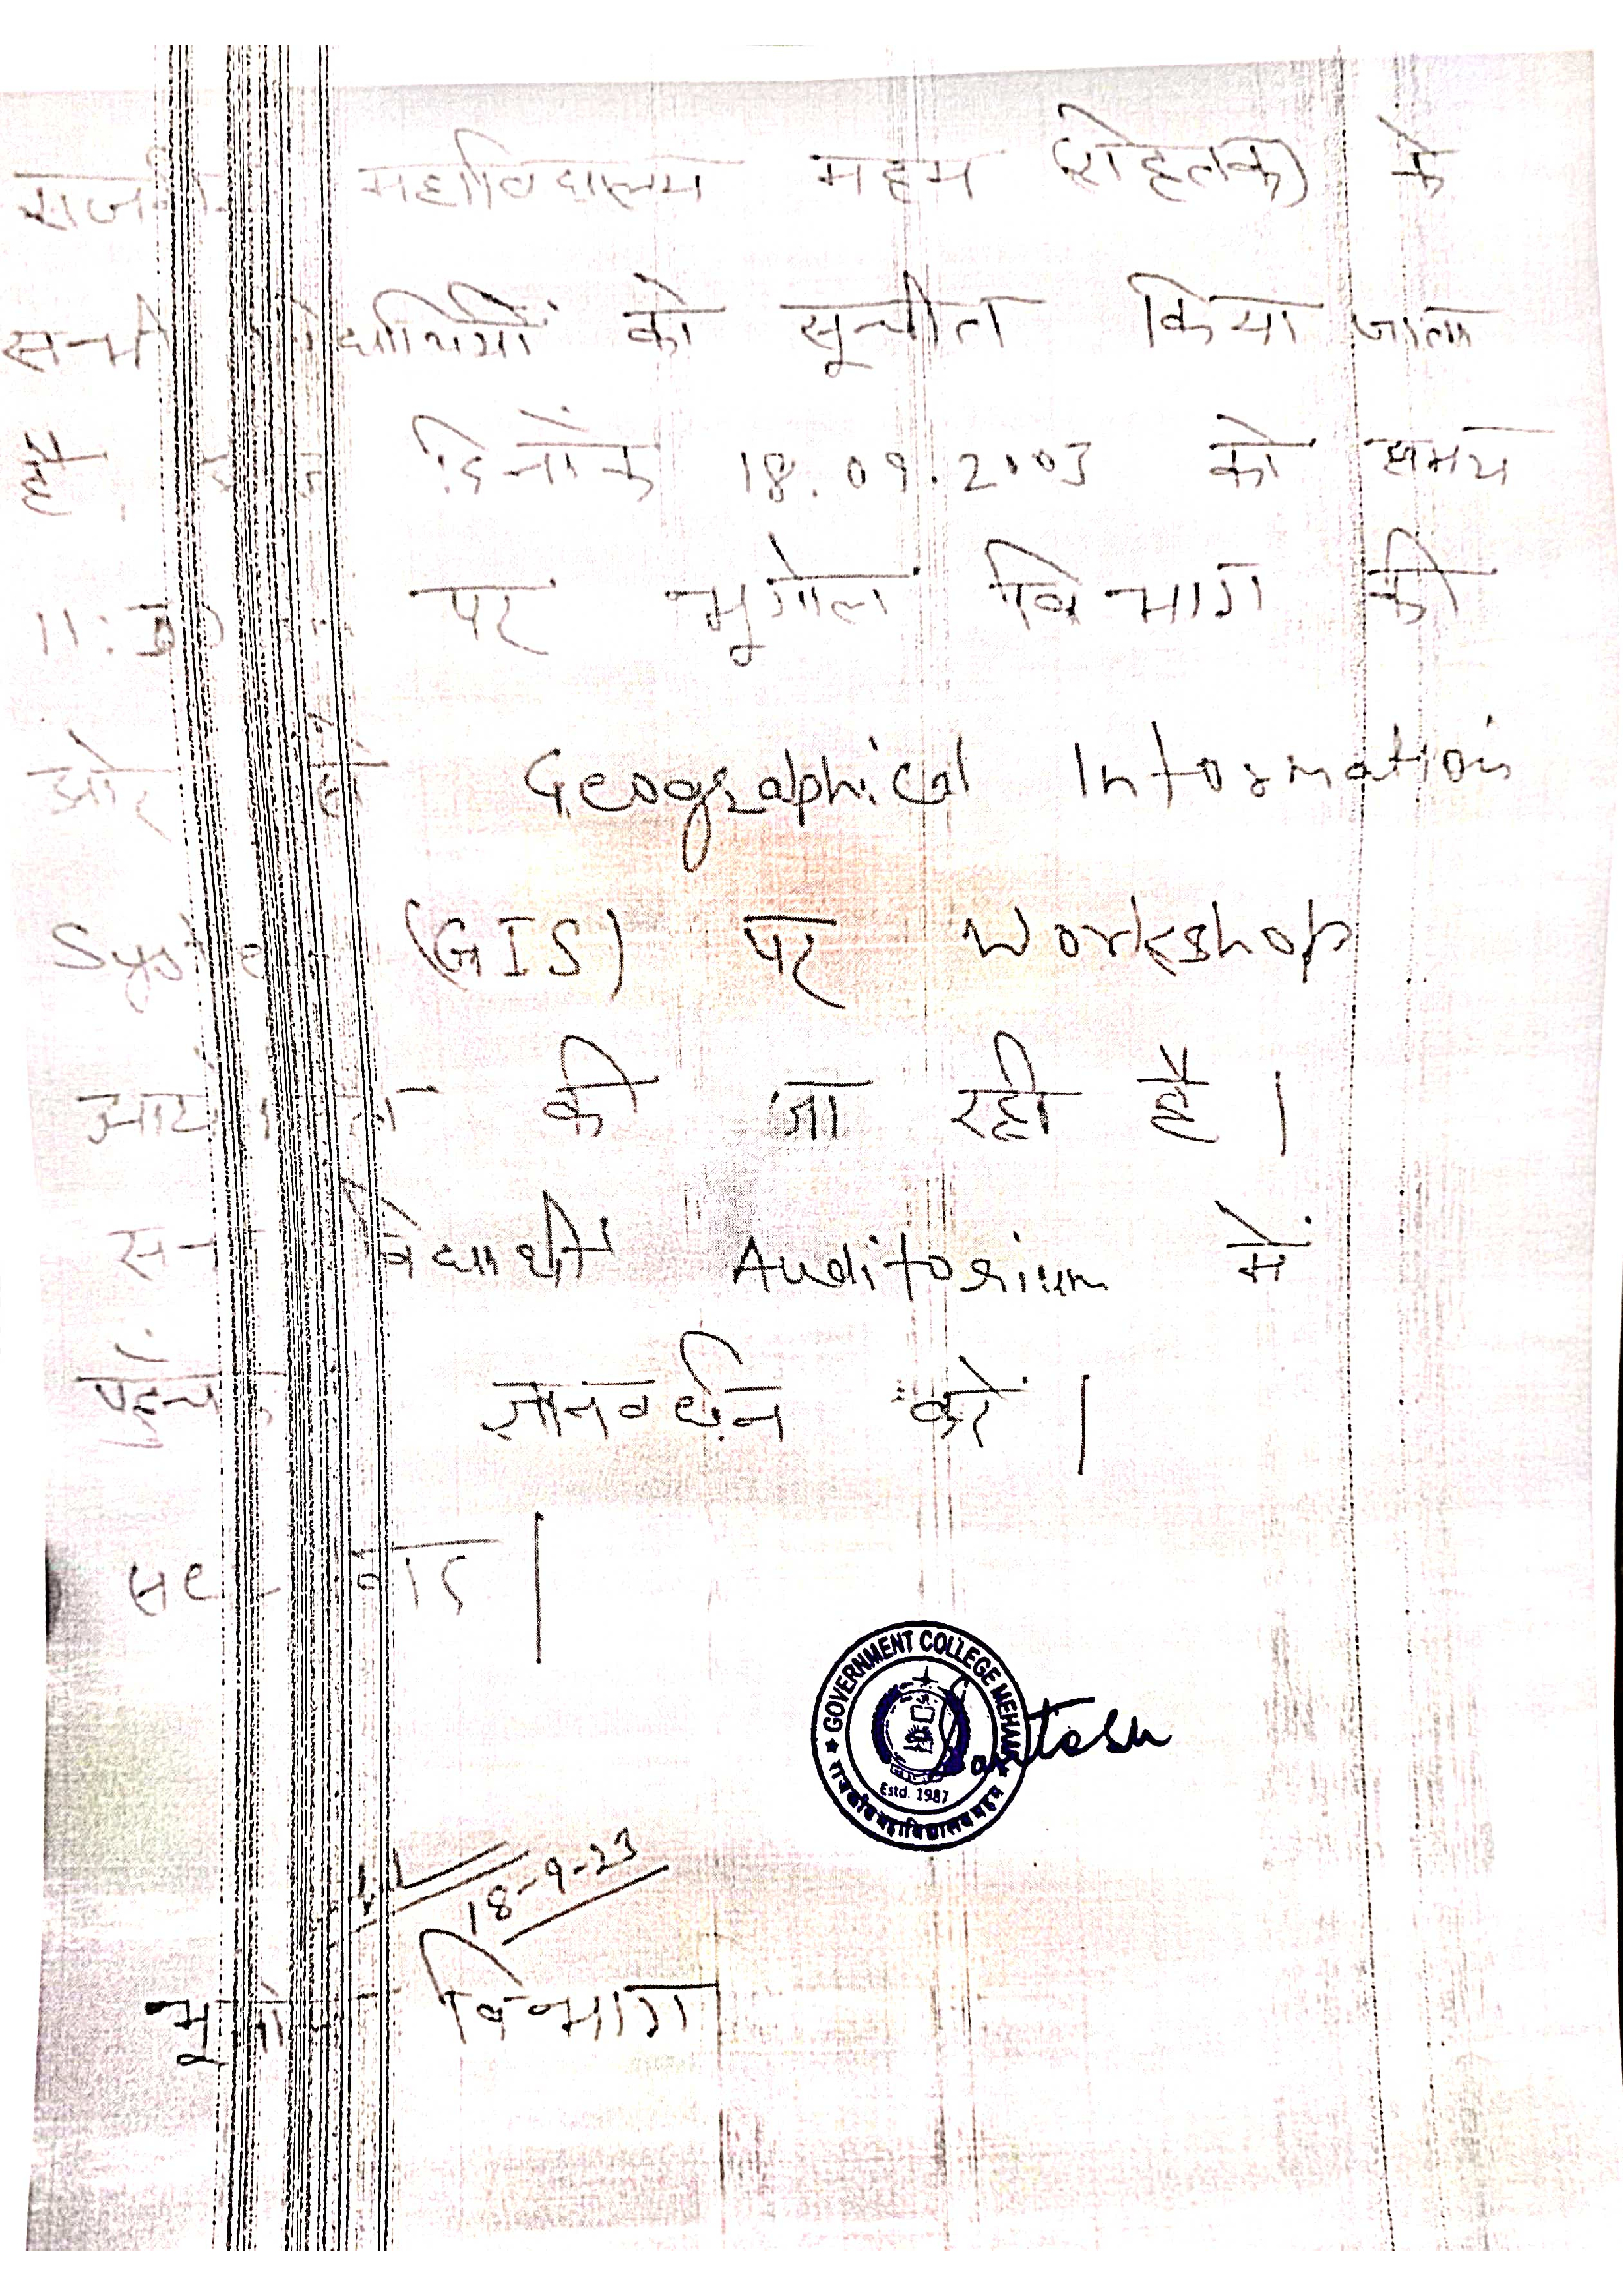 महाविद्यालय महम (रोहतक) के
को सूचीत किया जाता
है दिनाँक 18.09.2003 को समय
पर भूगोल विभाग की
ओर Geographical Information
(GIS) पर Workshop
की जा रही है।
विद्यार्थी Auditorium में
ज्ञानवर्धन करें।
GOVERNMENT COLLEGE MEHAM
Estd. 1987
राजकीय महाविद्यालय महम
Santosh
18-9-23
विभाग